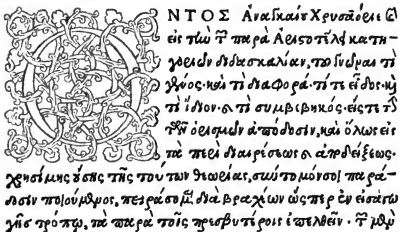 ΟΝΤΟΣ Ἀναγκαίου Χρυσαόριε καὶ
εἰς τὴν τῶν παρὰ Ἀριστοτέλει κατη-
γοριῶν διδασκαλίαν, τοῦ γνῶναι τί
γένος· καὶ τί διαφορά· τί τε εἶδος· καὶ
τί ἴδιον· καὶ τί συμβεβηκός· εἴς τε τὴν
τῶν ὁρισμῶν ἀπόδοσιν, καὶ ὅλως εἰς
τὰ περὶ διαιρέσεως καὶ ἀποδείξεως·
χρησίμης οὔσης τῆς τούτων θεωρίας, σύντομόν σοι παρά-
δοσιν ποιούμενος, πειράσομαι διὰ βραχέων ὥσπερ ἐν εἰσαγω
γῆς τρόπῳ, τὰ παρὰ τοῖς πρεσβυτέροις ἐπελθεῖν· τῶν μὲν